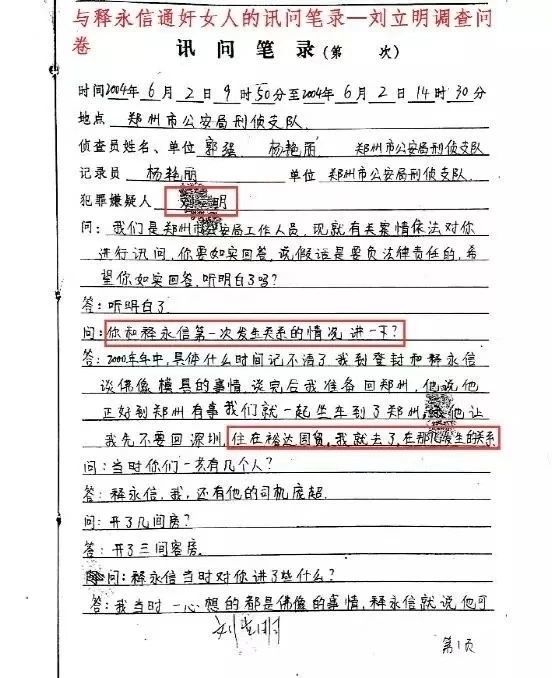 与释永信通奸女人的讯问笔录—刘立明调查问
卷
讯问笔录(第 次)
时间2004年6月2日9时50分至2004年6月2日14时30分
地点 郑州市公安局刑侦支队
侦查员姓名、单位 郭强 杨艳丽 郑州市公安局刑侦支队
记录员 杨艳丽 单位 郑州市公安局刑侦支队
犯罪嫌疑人 明
问:我们是郑州市公安局工作人员,现就有关案情依法对你
进行讯问,你要如实回答,说假话是要负法律责任的,希
望你如实回答,听明白了吗?
答:听明白了.
问:你和释永信第一次发生关系的情况讲一下?
答:2000年年中,具体什么时间记不清了,我到登封和释永信
谈佛像模具的事情,谈完后我准备回郑州,他说他
正好到郑州有事我们就一起坐车到了郑州,他让
我先不要回深圳,住在裕达国贸,我就去了,在那儿发生的关系
问:当时你们一共有几个人?
答:释永信,我,还有他的司机庞超.
问:开了几间房?
答:开了三间客房.
问:释永信当时对你讲了些什么?
答:我当时一心想的都是佛像的事情,释永信就说他可
刘立明
第1页